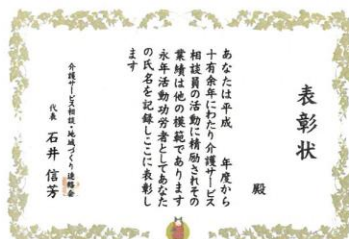 表彰状
殿
あなたは平成　年度から
十有余年にわたり介護サービス
相談員の活動に精励されその
業績は他の模範であります
永年活動功労者としてあなた
の氏名を記録しここに表彰し
ます
介護サービス相談・地域づくり連絡会
代表　石井　信芳